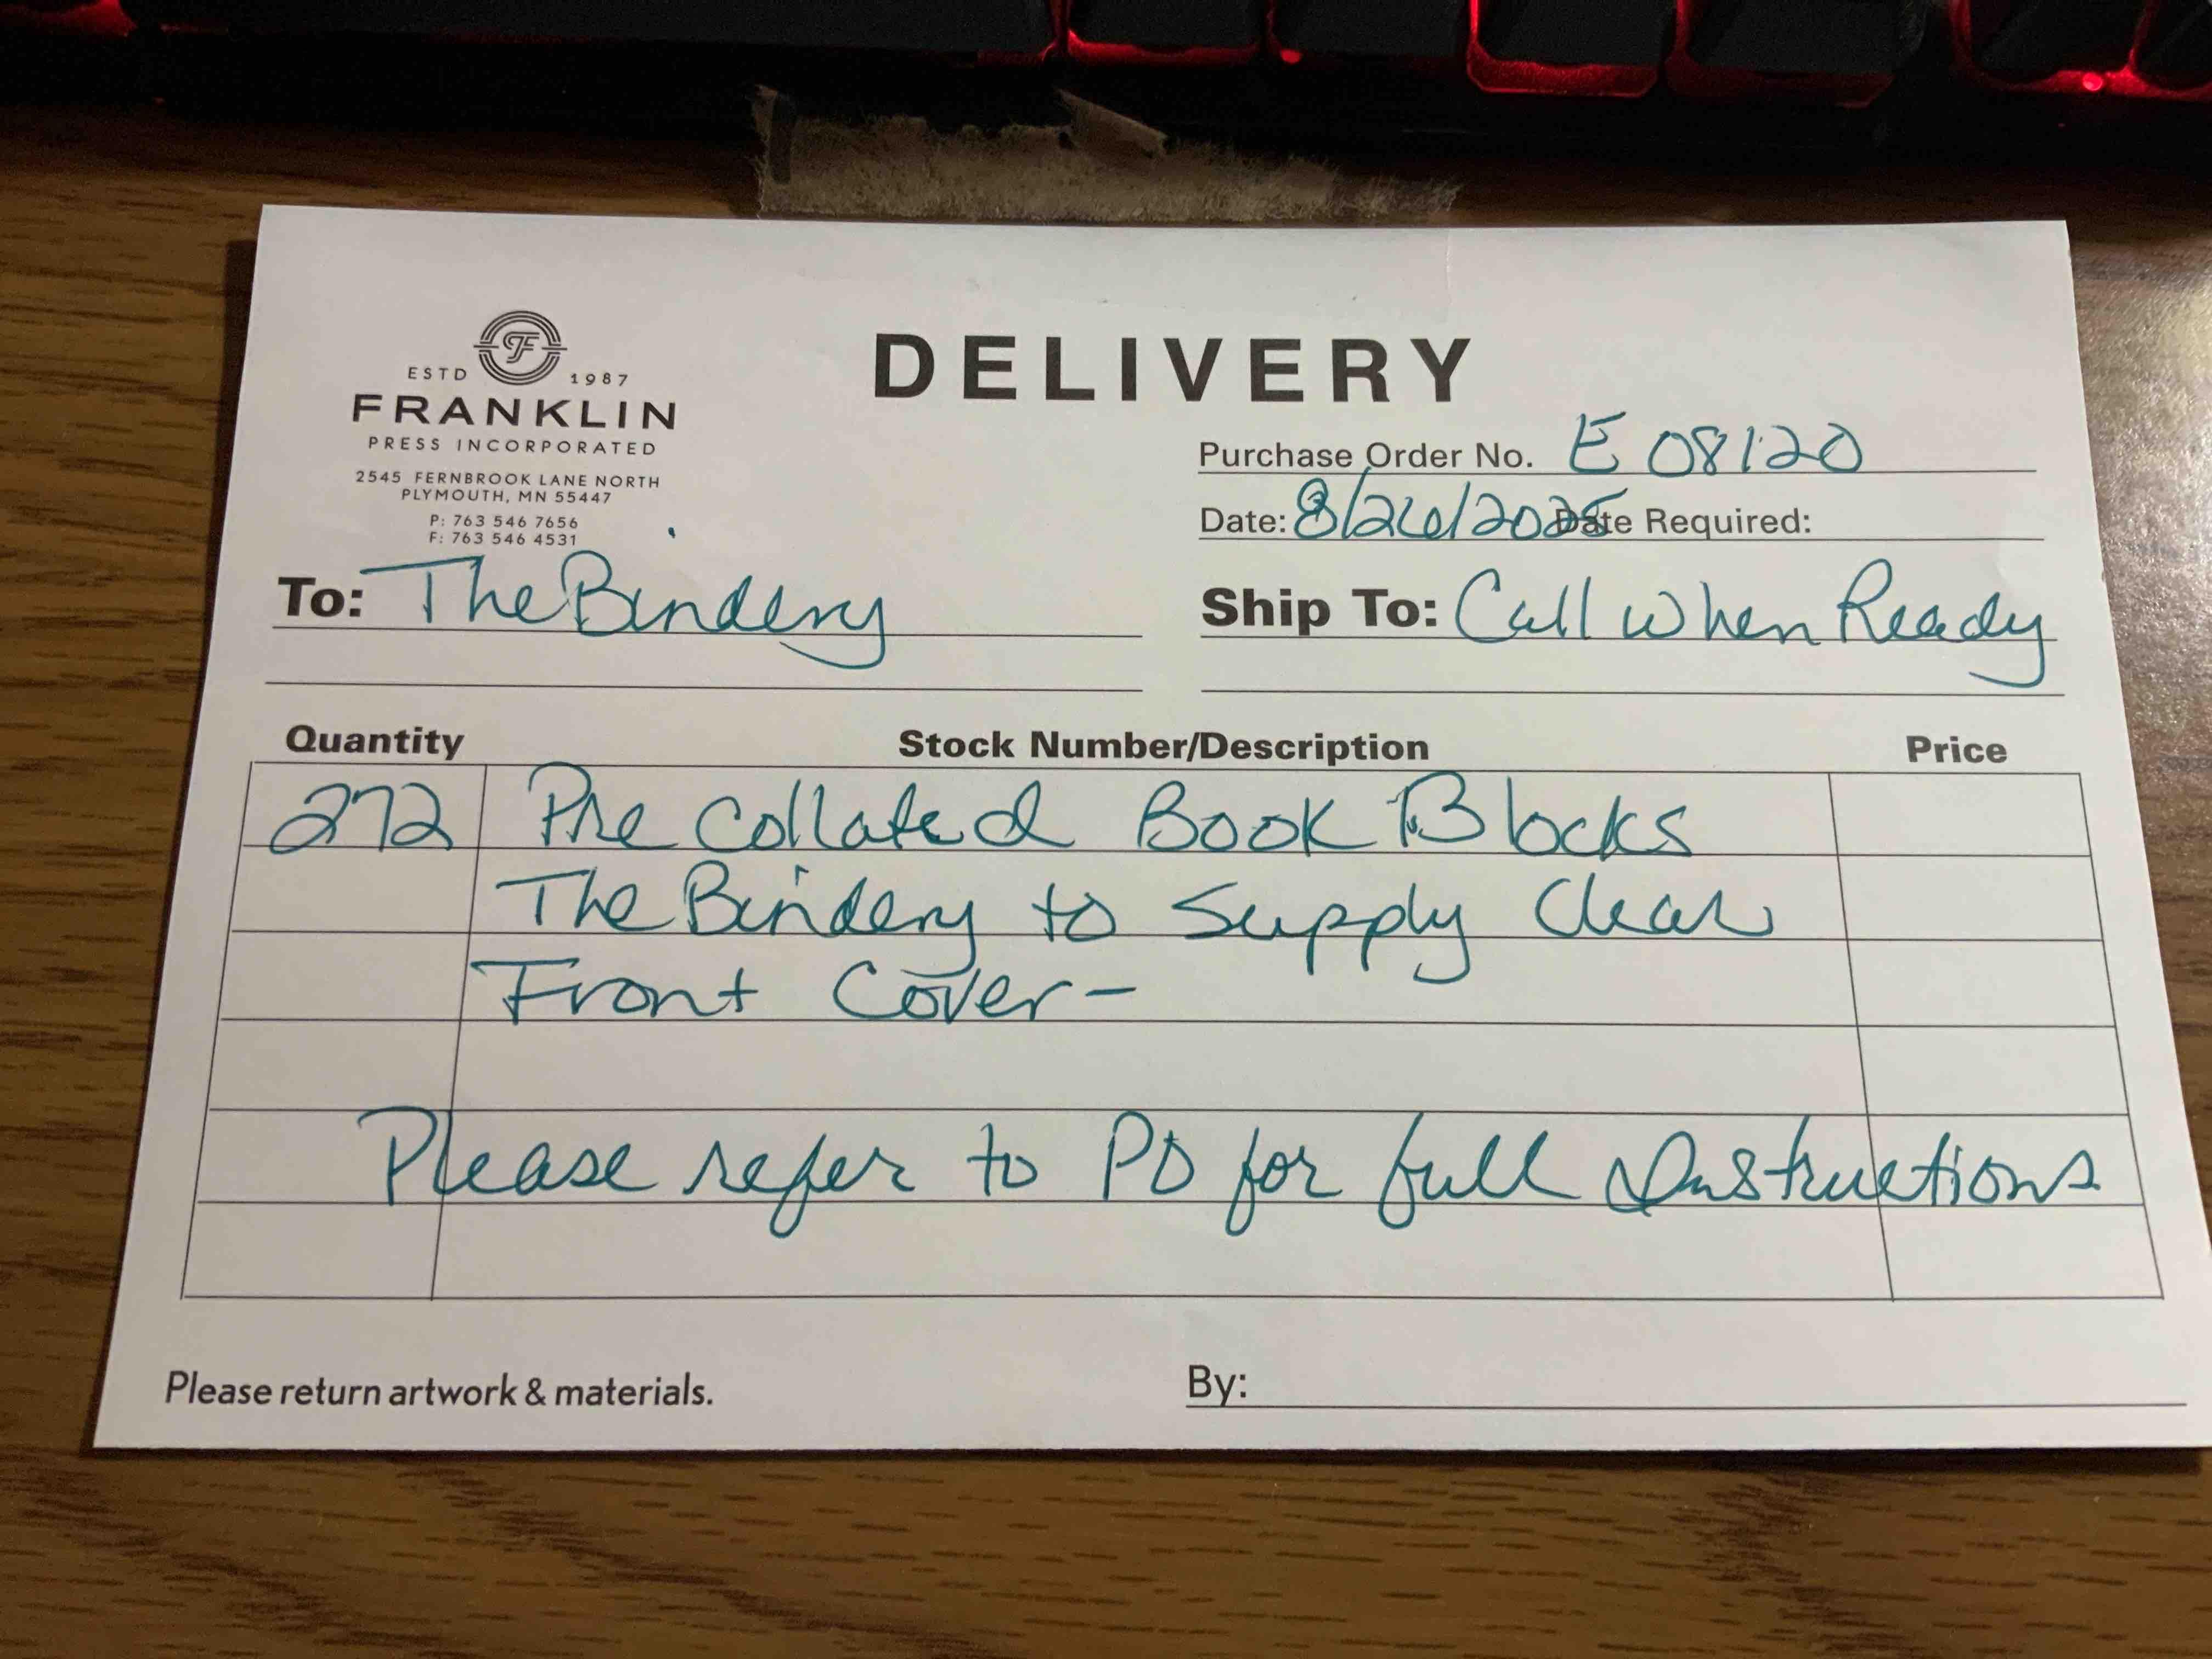 ESTD 1987
FRANKLIN
PRESS INCORPORATED
2545 FERNBROOK LANE NORTH
PLYMOUTH, MN 55447
P: 763 546 7656
F: 763 546 4531
DELIVERY
Purchase Order No. E 08120
Date: 8/26/2025 Date Required:
To: The Bindery
Ship To: Call When Ready
Quantity Stock Number/Description Price
272 Pre Collated Book Blocks
The Bindery to Supply Clear
Front Cover-
Please refer to PO for full Instructions
Please return artwork & materials.
By: